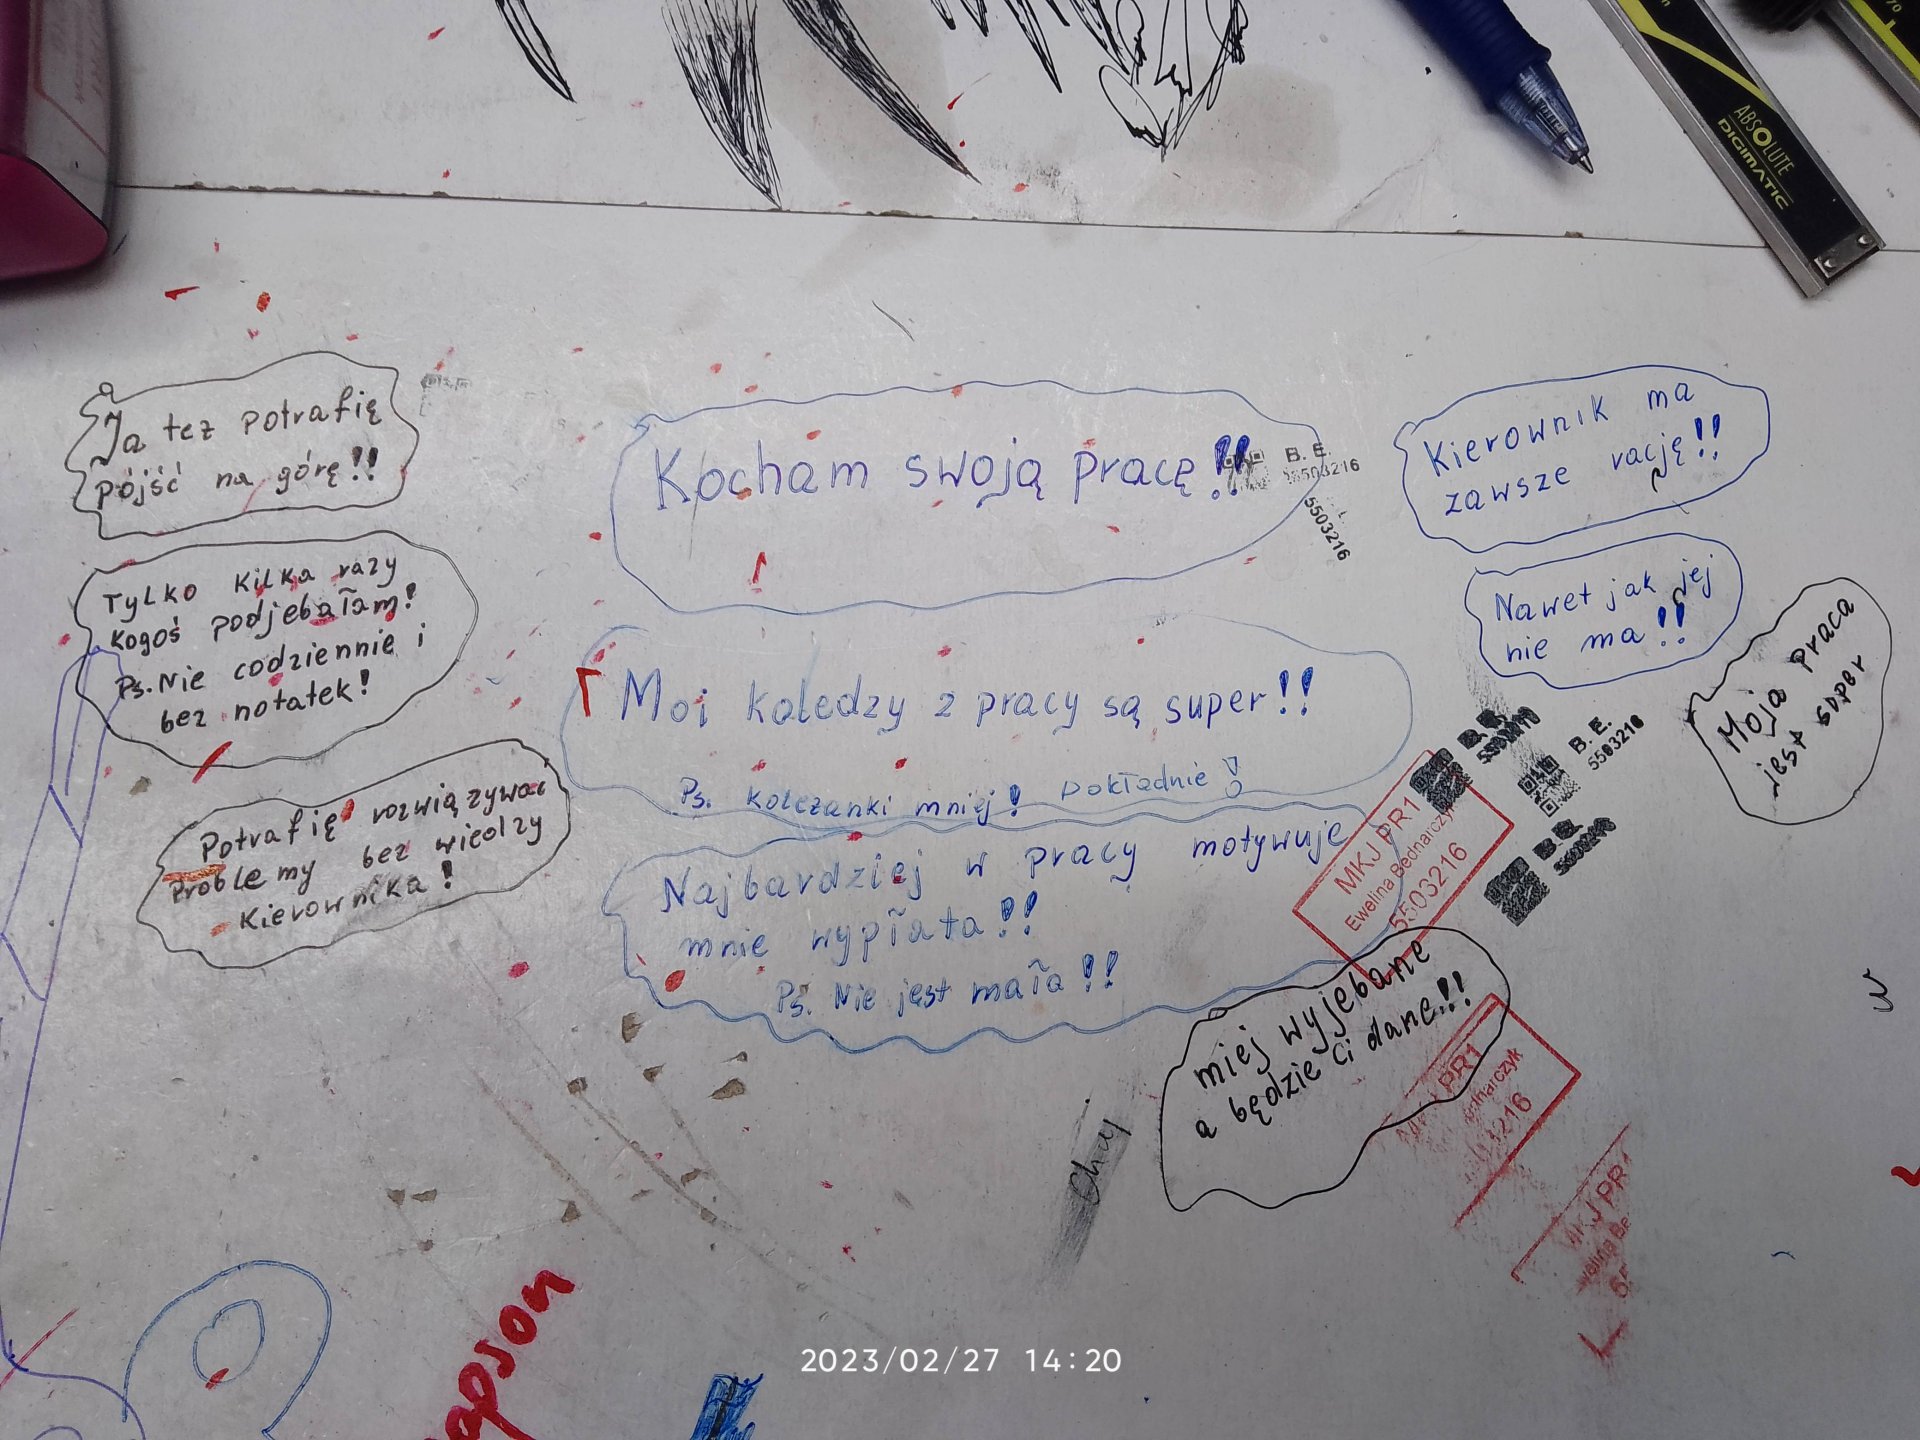 ABSOLUTE
DIGIMATIC
Ja też potrafię
pójść na górę!!
Tylko kilka razy
kogoś podjebałam!
Ps. Nie codziennie i
bez notatek!
Potrafię rozwiązywać
problemy bez wiedzy
kierownika!
Kocham swoją pracę!!
B. E.
5503216
5503216
Moi koledzy z pracy są super!!
Ps. koleżanki mniej! Dokładnie!
Najbardziej w pracy motywuje
mnie wypłata!!
Ps. Nie jest mała!!
Kierownik ma
zawsze rację!!
Nawet jak jej
nie ma!!
Moja praca
jest super
B. E.
5503216
B. E.
5503216
B. E.
5503216
MKJ PR1
Ewelina Bednarczyk
5503216
miej wyjebane
a będzie Ci dane!!!
PR1
dnarczyk
3216
MKJ PR
welina Be
55
Chuy
2023/02/27 14:20